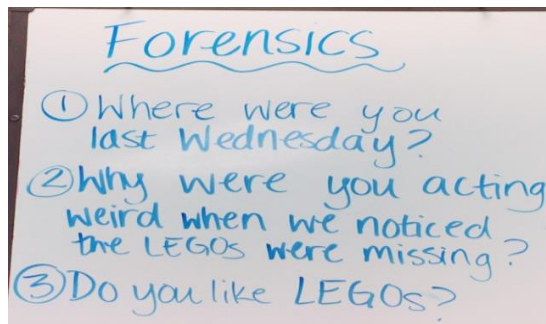 Forensics
① Where were you
last Wednesday?
② Why were you acting
weird when we noticed
the LEGOs were missing?
③ Do you like LEGOs?